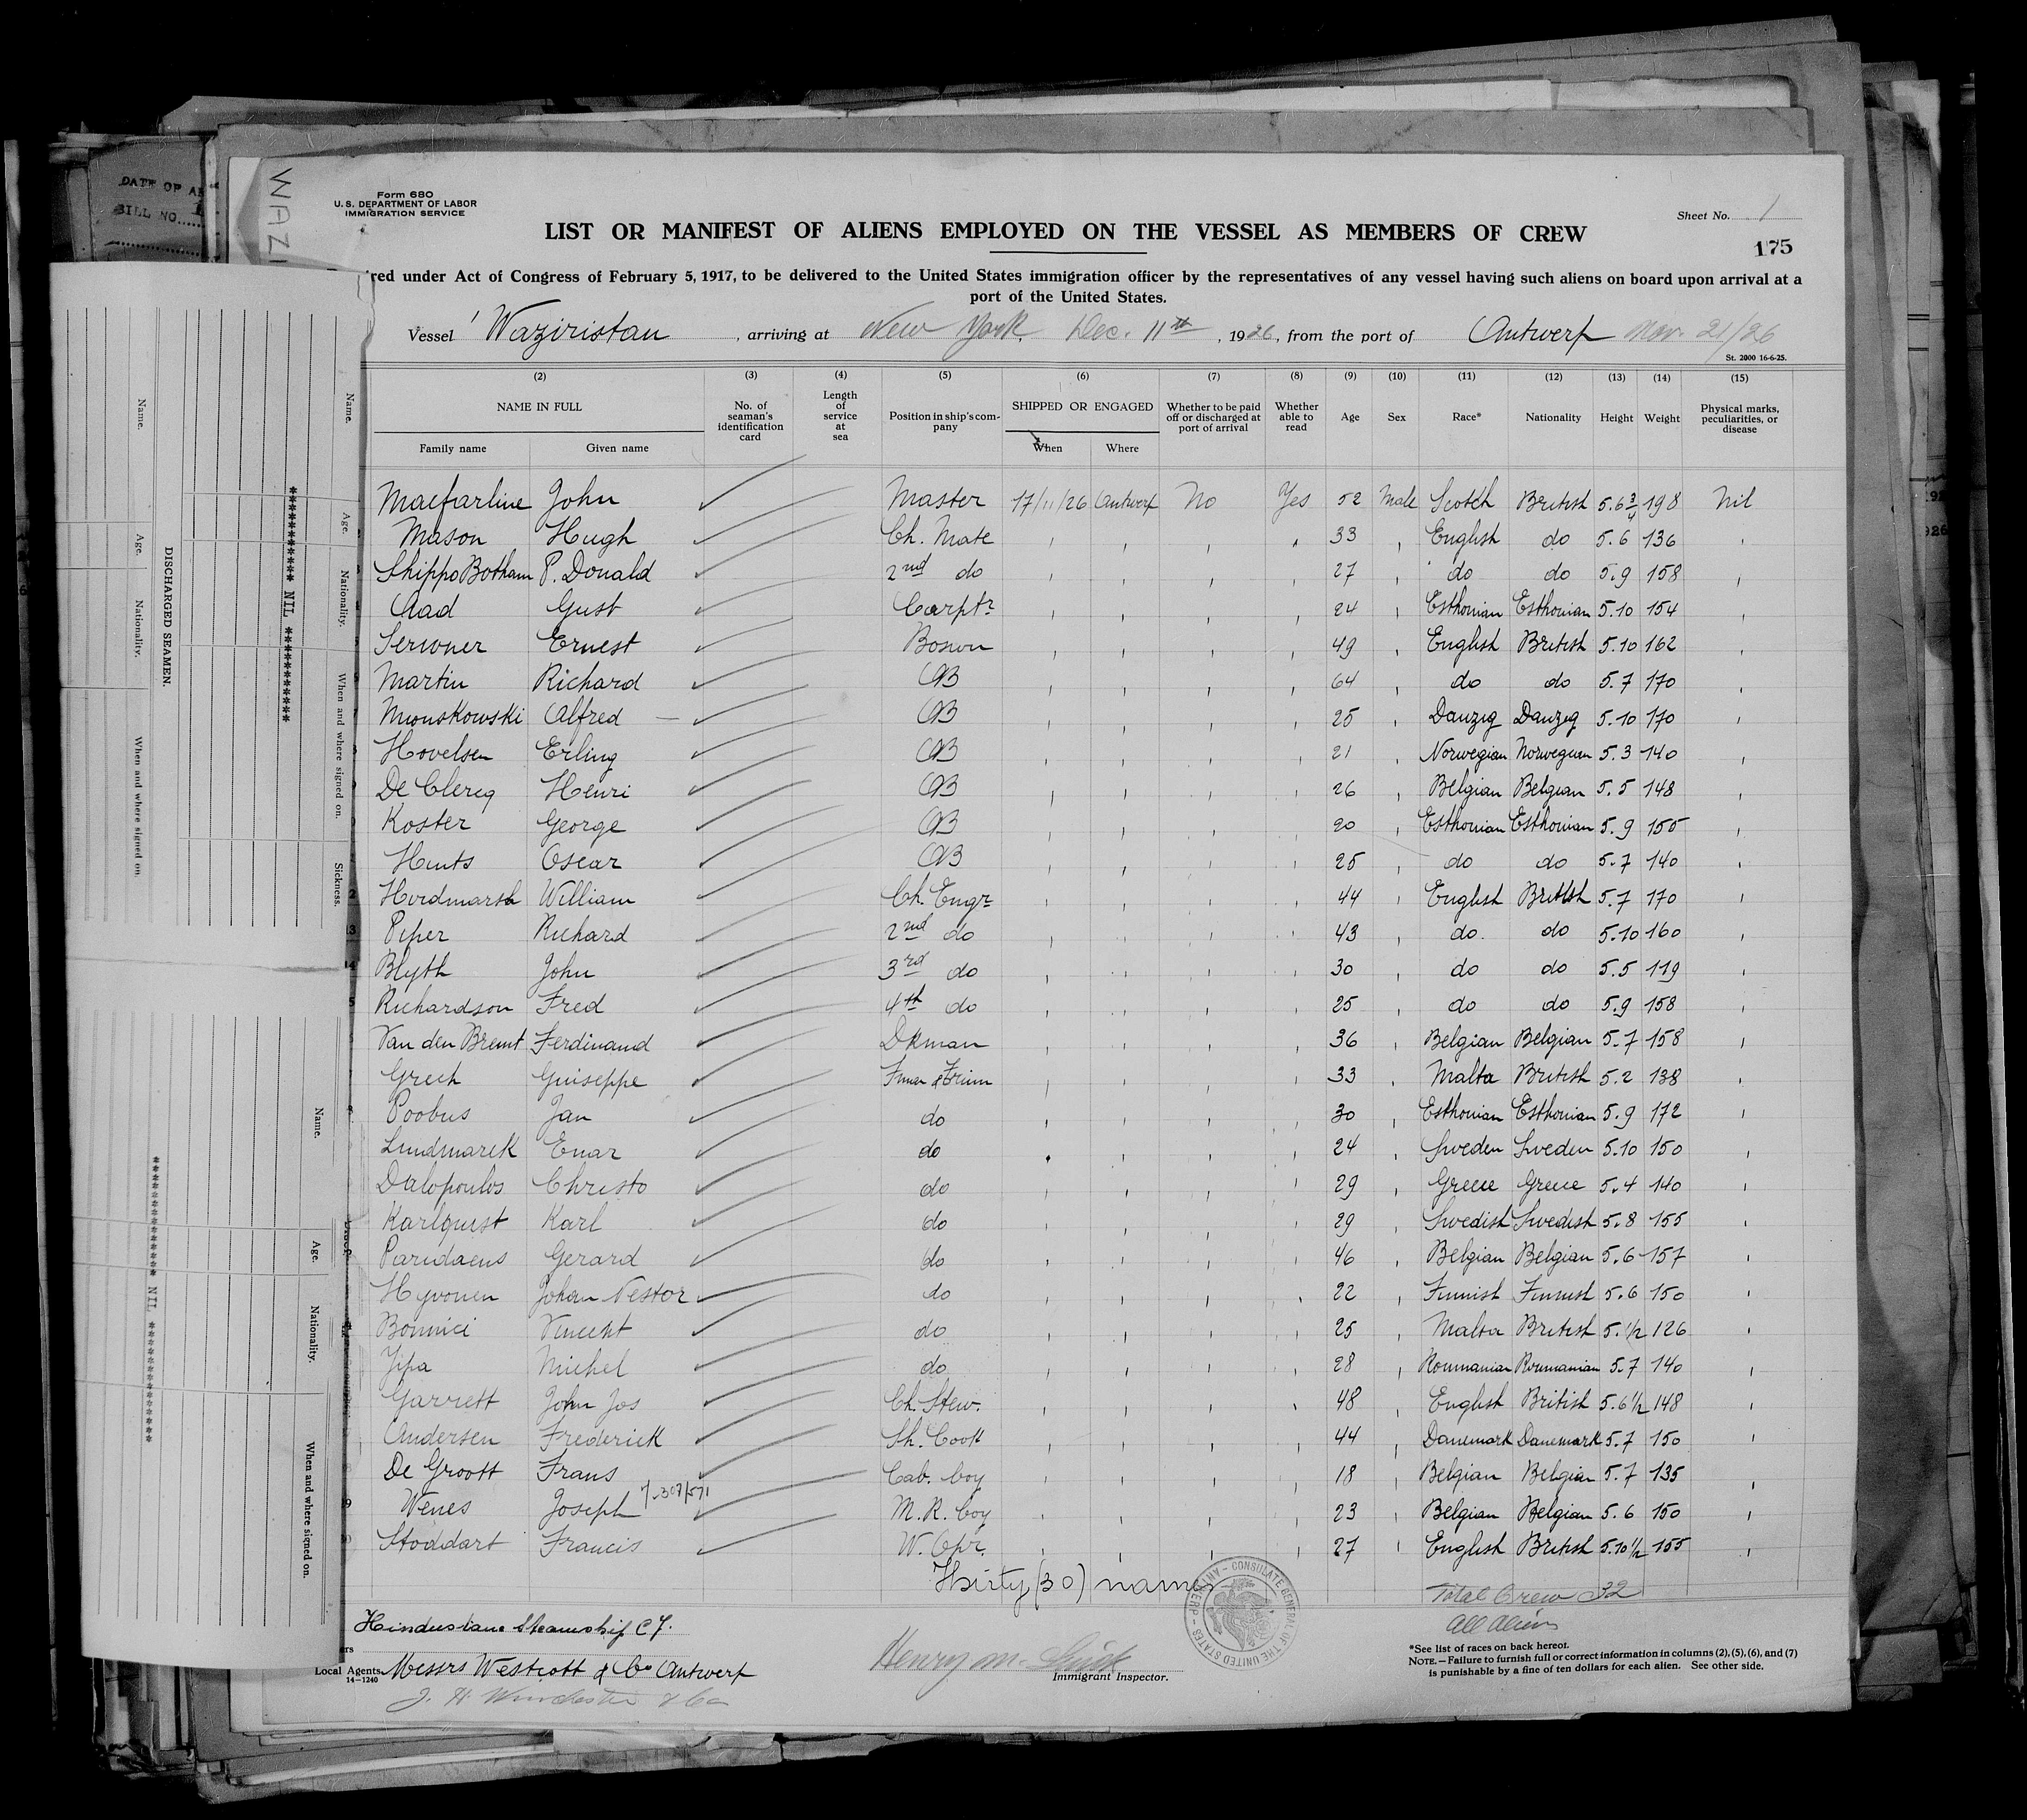 DATE OF AR
BILL NO.
WAZI
Form 680
U. S. DEPARTMENT OF LABOR
IMMIGRATION SERVICE
Sheet No. 1
LIST OR MANIFEST OF ALIENS EMPLOYED ON THE VESSEL AS MEMBERS OF CREW
175
red under Act of Congress of February 5, 1917, to be delivered to the United States immigration officer by the representatives of any vessel having such aliens on board upon arrival at a
port of the United States.
Vessel Waziristan, arriving at New York, Dec. 11th, 1926, from the port of Antwerp Nov. 21/26
St. 2000 16-6-25.
(2) (3) (4) (5) (6) (7) (8) (9) (10) (11) (12) (13) (14) (15)
NAME IN FULL No. of seaman's identification card Length of service at sea Position in ship's company SHIPPED OR ENGAGED Whether to be paid off or discharged at port of arrival Whether able to read Age Sex Race* Nationality Height Weight Physical marks, peculiarities, or disease
Family name Given name When Where
Macfarline John Master 17/11/26 Antwerp No Yes 52 Male Scotch British 5.6 3/4 198 Nil
Mason Hugh Ch. Mate 33 English do 5.6 136
ShippoBotham P. Donald 2nd do 27 do do 5.9 158
Aad Gust Carptr 24 Esthonian Esthonian 5.10 154
Ernest Bosun 49 English British 5.10 162
Martin Richard AB 64 do do 5.7 170
Alfred AB 25 Danzig Danzig 5.10 170
Hovelsen Erling AB 21 Norwegian Norwegian 5.3 140
De Clercq Henri AB 26 Belgian Belgian 5.5 148
Koster George AB 20 Esthonian Esthonian 5.9 155
Hints Oscar AB 25 do do 5.7 140
Hirdmarsh William Ch. Engr 44 English British 5.7 170
Piper Richard 2nd do 43 do do 5.10 160
Blyth John 3rd do 30 do do 5.5 119
Richardson Fred 4th do 25 do do 5.9 158
Van den Bremt Ferdinand Dkman 36 Belgian Belgian 5.7 158
Grech Guiseppe Fman & Trim 33 Malta British 5.2 138
Poobus Jan do 30 Esthonian Esthonian 5.9 172
Lundmarck Enar do 24 Sweden Sweden 5.10 150
Dalopoulos Christo do 29 Greece Greece 5.4 140
Karlquist Karl do 29 Swedish Swedish 5.8 155
Paridaens Gerard do 46 Belgian Belgian 5.6 157
Hyvonen Johan Nestor do 22 Finnish Finnish 5.6 150
Bonnici Vincent do 25 Malta British 5.1/2 126
Michel do 28 Roumanian Roumanian 5.7 140
Garrett John Jos Ch. Stew. 48 English British 5.6 1/2 148
Andersen Frederick Sh. Cook 44 Danemark Danemark 5.7 150
De Groott Frans Cab. boy 18 Belgian Belgian 5.7 135
Wenes Joseph M. R. boy 23 Belgian Belgian 5.6 150
Stoddart Francis W. Opr. 27 English British 5.10 1/2 155
Thirty (30) names
Total Crew 32
All Aliens
CONSULATE GENERAL OF THE UNITED STATES - ANTWERP -
Hindustane Steamship Cy.
Local Agents Messrs Westcott & Co Antwerp
14—1240
J. H. Winchester & Co
Henry M.
Immigrant Inspector.
*See list of races on back hereof.
NOTE.—Failure to furnish full or correct information in columns (2), (5), (6), and (7)
is punishable by a fine of ten dollars for each alien. See other side.
Name. Age. Nationality. When and where signed on.
DISCHARGED SEAMEN.
NIL
Name. Age. Nationality. When and where signed on. Sickness.
NIL
Name. Age. Nationality. When and where signed on.